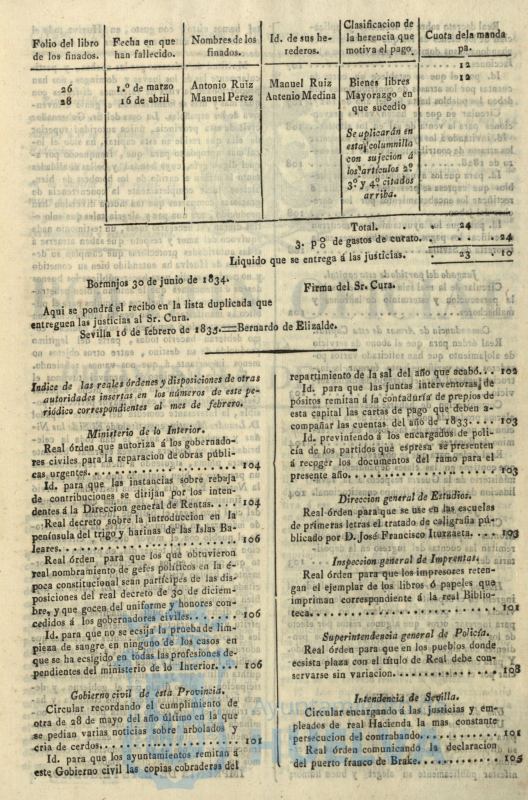 Folio del libro de los finados.
Fecha en que han fallecido.
Nombres de los finados.
Id. de sus herederos.
Clasificacion de la herencia que motiva el pago.
Cuota de la manda pa.
26
28
1.º de marzo
16 de abril
Antonio Ruiz
Manuel Perez
Manuel Ruiz
Antonio Medina
Bienes libres
Mayorazgo en
que sucedio
Se uplicarán en
esta columnilla
con sujecion á
los artículos 2º
3º y 4º citados
arriba.
12
12
Total. . . 24
3. p% de gastos de curato. . . . . 24
Liquido que se entrega á las justicias. . 23 . 10
Bormnjos 30 de junio de 1834.
Firma del Sr. Cura.
Aqui se pondrá el recibo en la lista duplicada que
entreguen las justicias al Sr. Cura.
Sevilla 16 de febrero de 1835.=Bernardo de Elizalde.
Indice de las reales órdenes y disposiciones de otras
autoridades insertas en los números de este periódico
correspondientes al mes de febrero.
Ministerio de lo Interior.
Real órden que autoriza á los gobernado-
res civiles para la reparacion de obras públi-
cas urgentes. . . . . . . . . . . . . . . . 104
Id. para que las instancias sobre rebaja
de contribuciones se dirijan por los inten-
dentes á la Direccion general de Rentas. . . . 104
Real decreto sobre la introduccion en la
península del trigo y harinas de las Islas Ba-
leares. . . . . . . . . . . . . . . . . . . 106
Real órden para que los que obtuvieron
real nombramiento de gefes políticos en la é-
poca constitucional sean partícipes de las dis-
posiciones del real decreto de 30 de diciem-
bre, y que gocen del uniforme y honores con-
cedidos á los gobernadores civiles. . . . . . 106
Id. para que no se ecsija la prueba de lim-
pieza de sangre en ninguno de los casos en
que se ha ecsigido en todas las profesiones de-
pendientes del ministerio de lo Interior. . . . 106
Gobierno civil de esta Provincia.
Circular recordando el cumplimiento de
otra de 28 de mayo del año último en la que
se pedian varias noticias sobre arbolados y
cria de cerdos. . . . . . . . . . . . . . . 101
Id. para que los ayuntamientos remitan á
este Gobierno civil las copias cobraderas del
repartimiento de la sal del año que acabó. . . 102
Id. para que las juntas interventoras de
pósitos remitan á la contaduría de propios de
esta capital las cartas de pago que deben a-
compañar las cuentas del año de 1833. . . . 103
Id. previniendo á los encargados de poli-
cía de los partidos que espresa se presenten
á recoger los documentos del ramo para el
presente año. . . . . . . . . . . . . . . . 103
Direccion general de Estudios.
Real órden para que se use en las escuelas
de primeras letras el tratado de caligrafia pú-
blicado por D. José Francisco Iturzaeta. . . . 103
Inspeccion general de Imprentas.
Real órden para que los impresores reten-
gan el ejemplar de los libros ó papeles que
impriman correspondiente á la real Biblio-
teca. . . . . . . . . . . . . . . . . . . . 101
Superintendencia general de Policía.
Real órden para que en los pueblos donde
ecsista plaza con el título de Real debe con-
servarse sin variacion. . . . . . . . . . . . 108
Intendencia de Sevilla.
Circular encargando á las justicias y em-
pleados de real Hacienda la mas constante
persecucion del contrabando. . . . . . . . . 101
Real órden comunicando la declaracion
del puerto franco de Brake. . . . . . . . . . 105